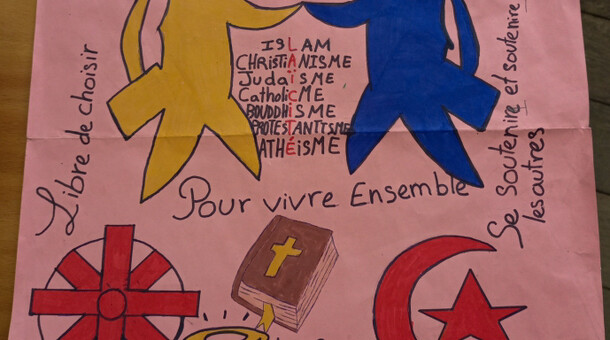 Libre de choisir
ISLAM
CHRISTIANISME
JUDAÏSME
CatholiCME
BOUDDHISME
PROTESTANTISME
ATHÉISME
Se soutenire et soutenire
les autres
Pour vivre Ensemble